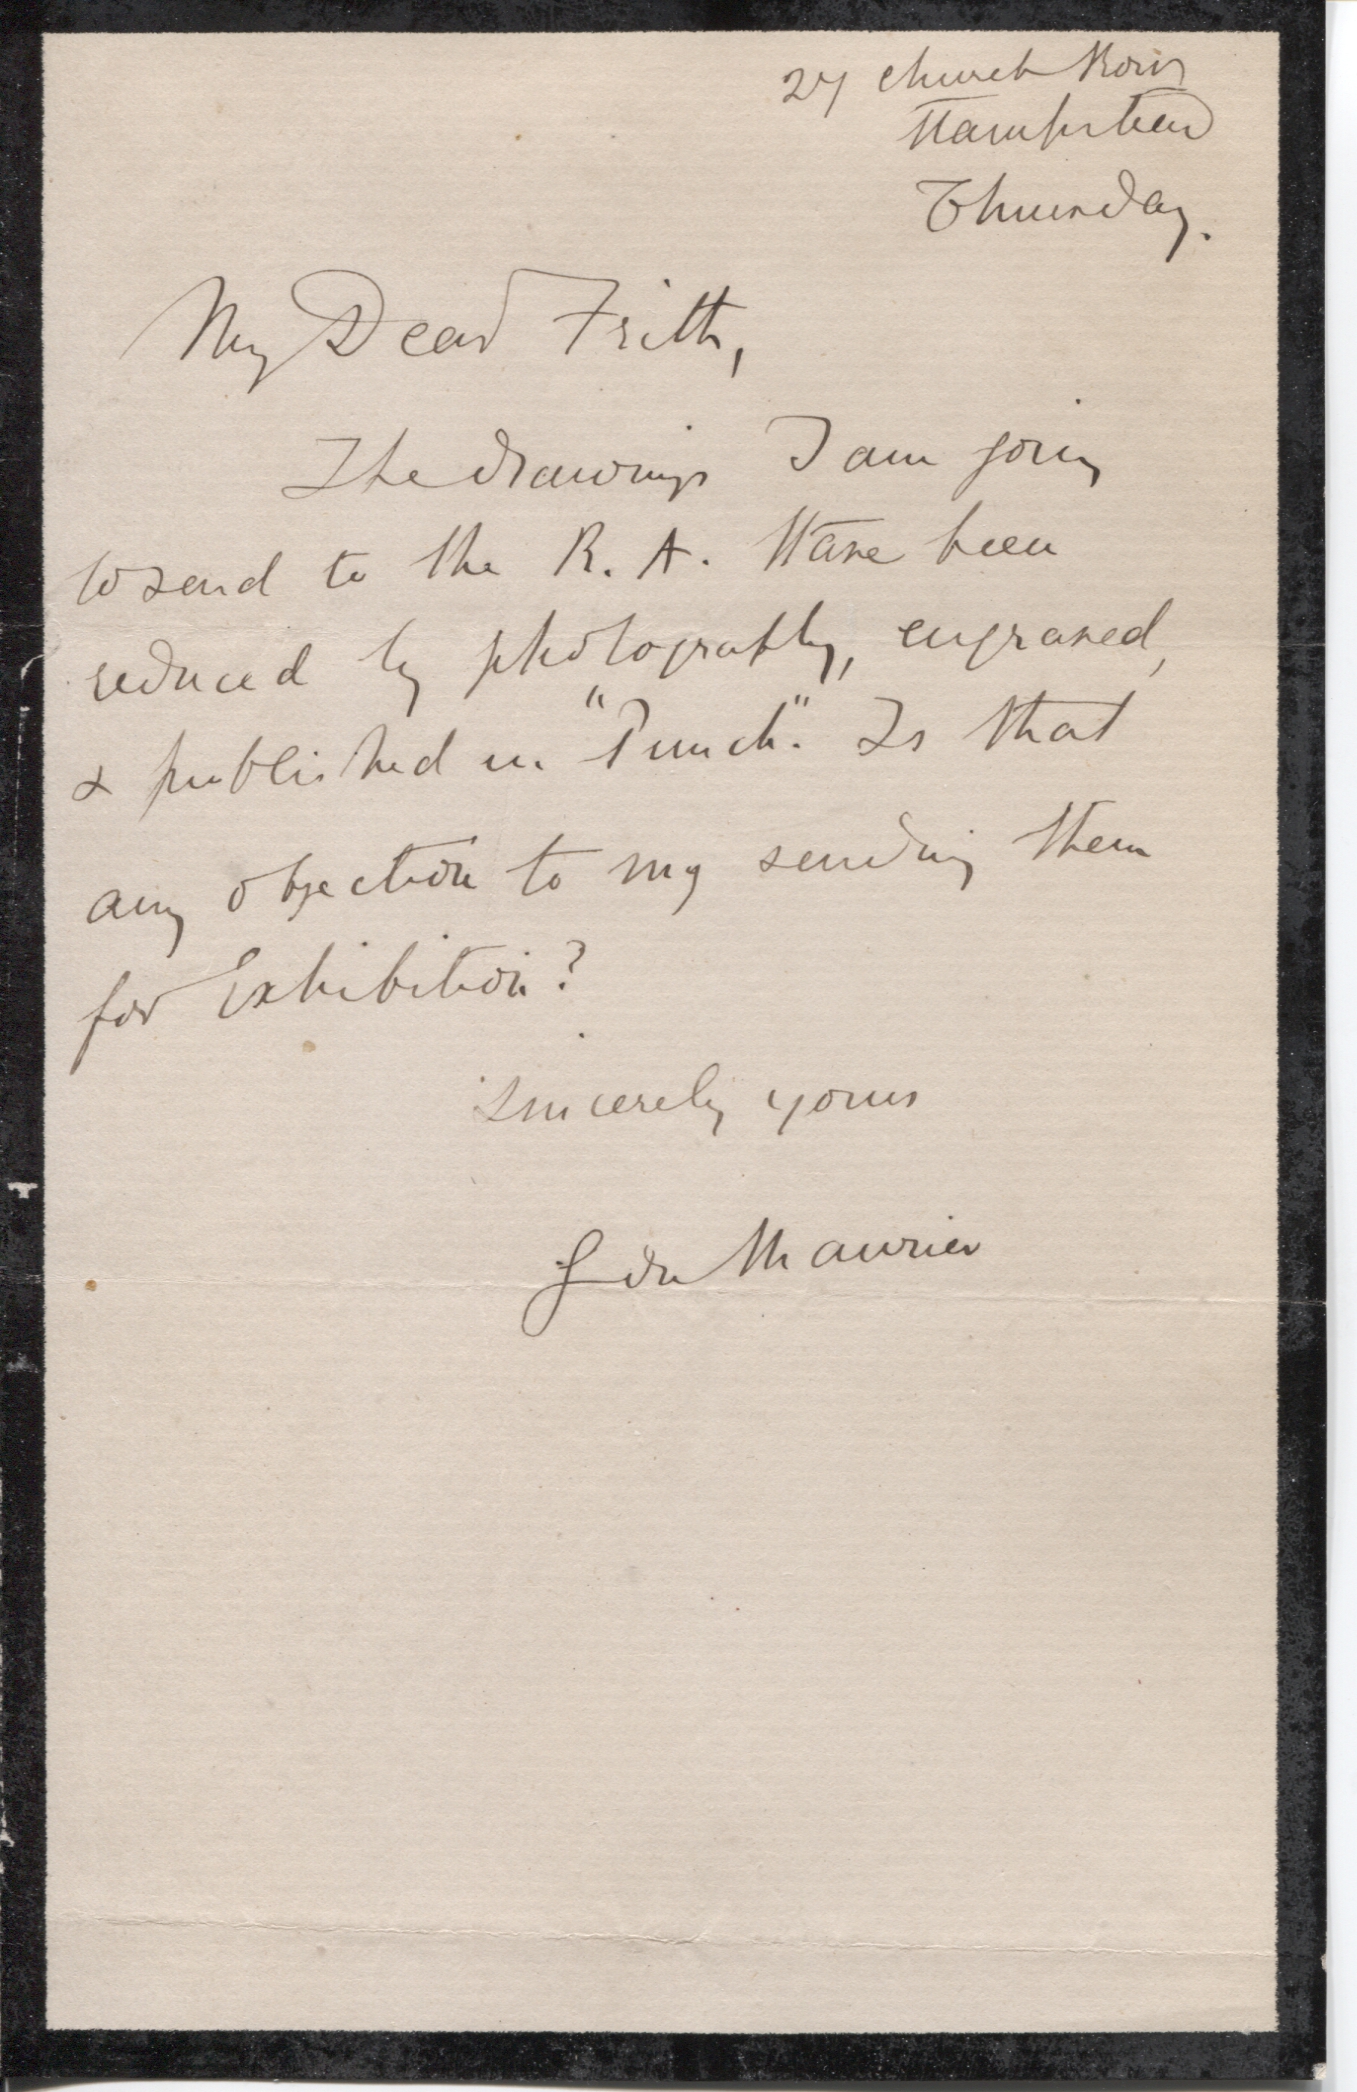 27 Church Row
Hampstead
Thursday.
My Dear Frith,
The drawings I am going
to send to the R. A. Have been
reduced by photography, engraved,
& published in "Punch". Is that
any objection to my sending them
for Exhibition?
Sincerely yours
G du Maurier